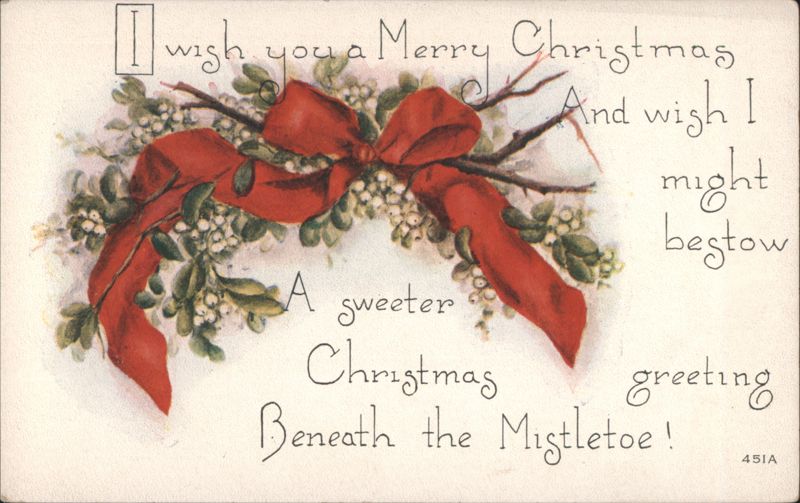 I wish you a Merry Christmas
And wish I
might
bestow
A sweeter
Christmas greeting
Beneath the Mistletoe!
451A